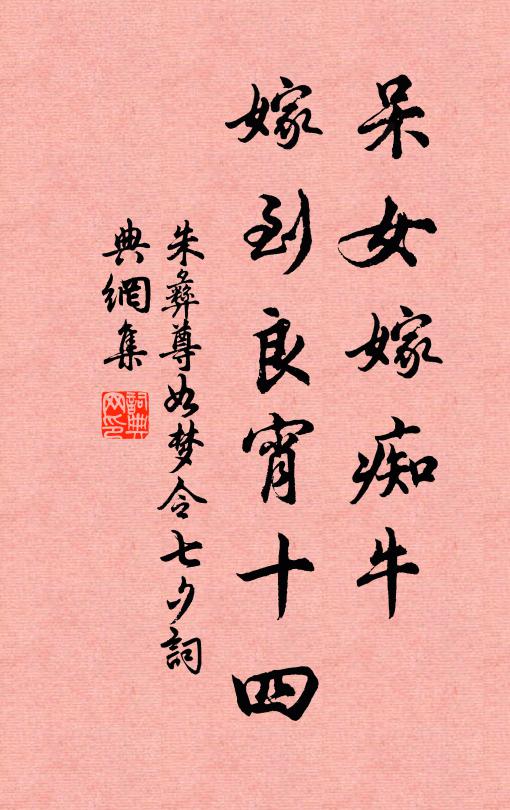 呆女嫁痴牛
嫁到良宵十四
朱彝尊如梦令七夕詞
典網集
詞典网印